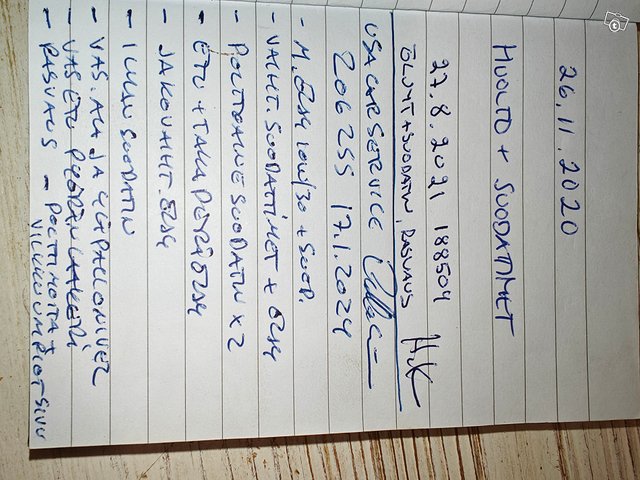 26.11.2020
HUOLTO + SUODATTIMET
27.8.2021 188504
ÖLJYT + SUODATIN, RASVAUS HK
USA CAR SERVICE
206255 17.1.2024
- M. ÖLJY 10W/30 + SUOD.
- VAIHT. SUODATTIMET + ÖLJY
- POLTTOAINE SUODATIN X2
- ETU + TAKA PERÄÖLJY
- JAKOVAIHT. ÖLJY
- ILMAN SUODATIN
- VAS. ALA JA YLÄPALLONIVEL
- VAS ETU PYÖRÄN LAAKERI
- RASVAUS - POLTTIMOITA +
VILKKUUMPIOT SIVU